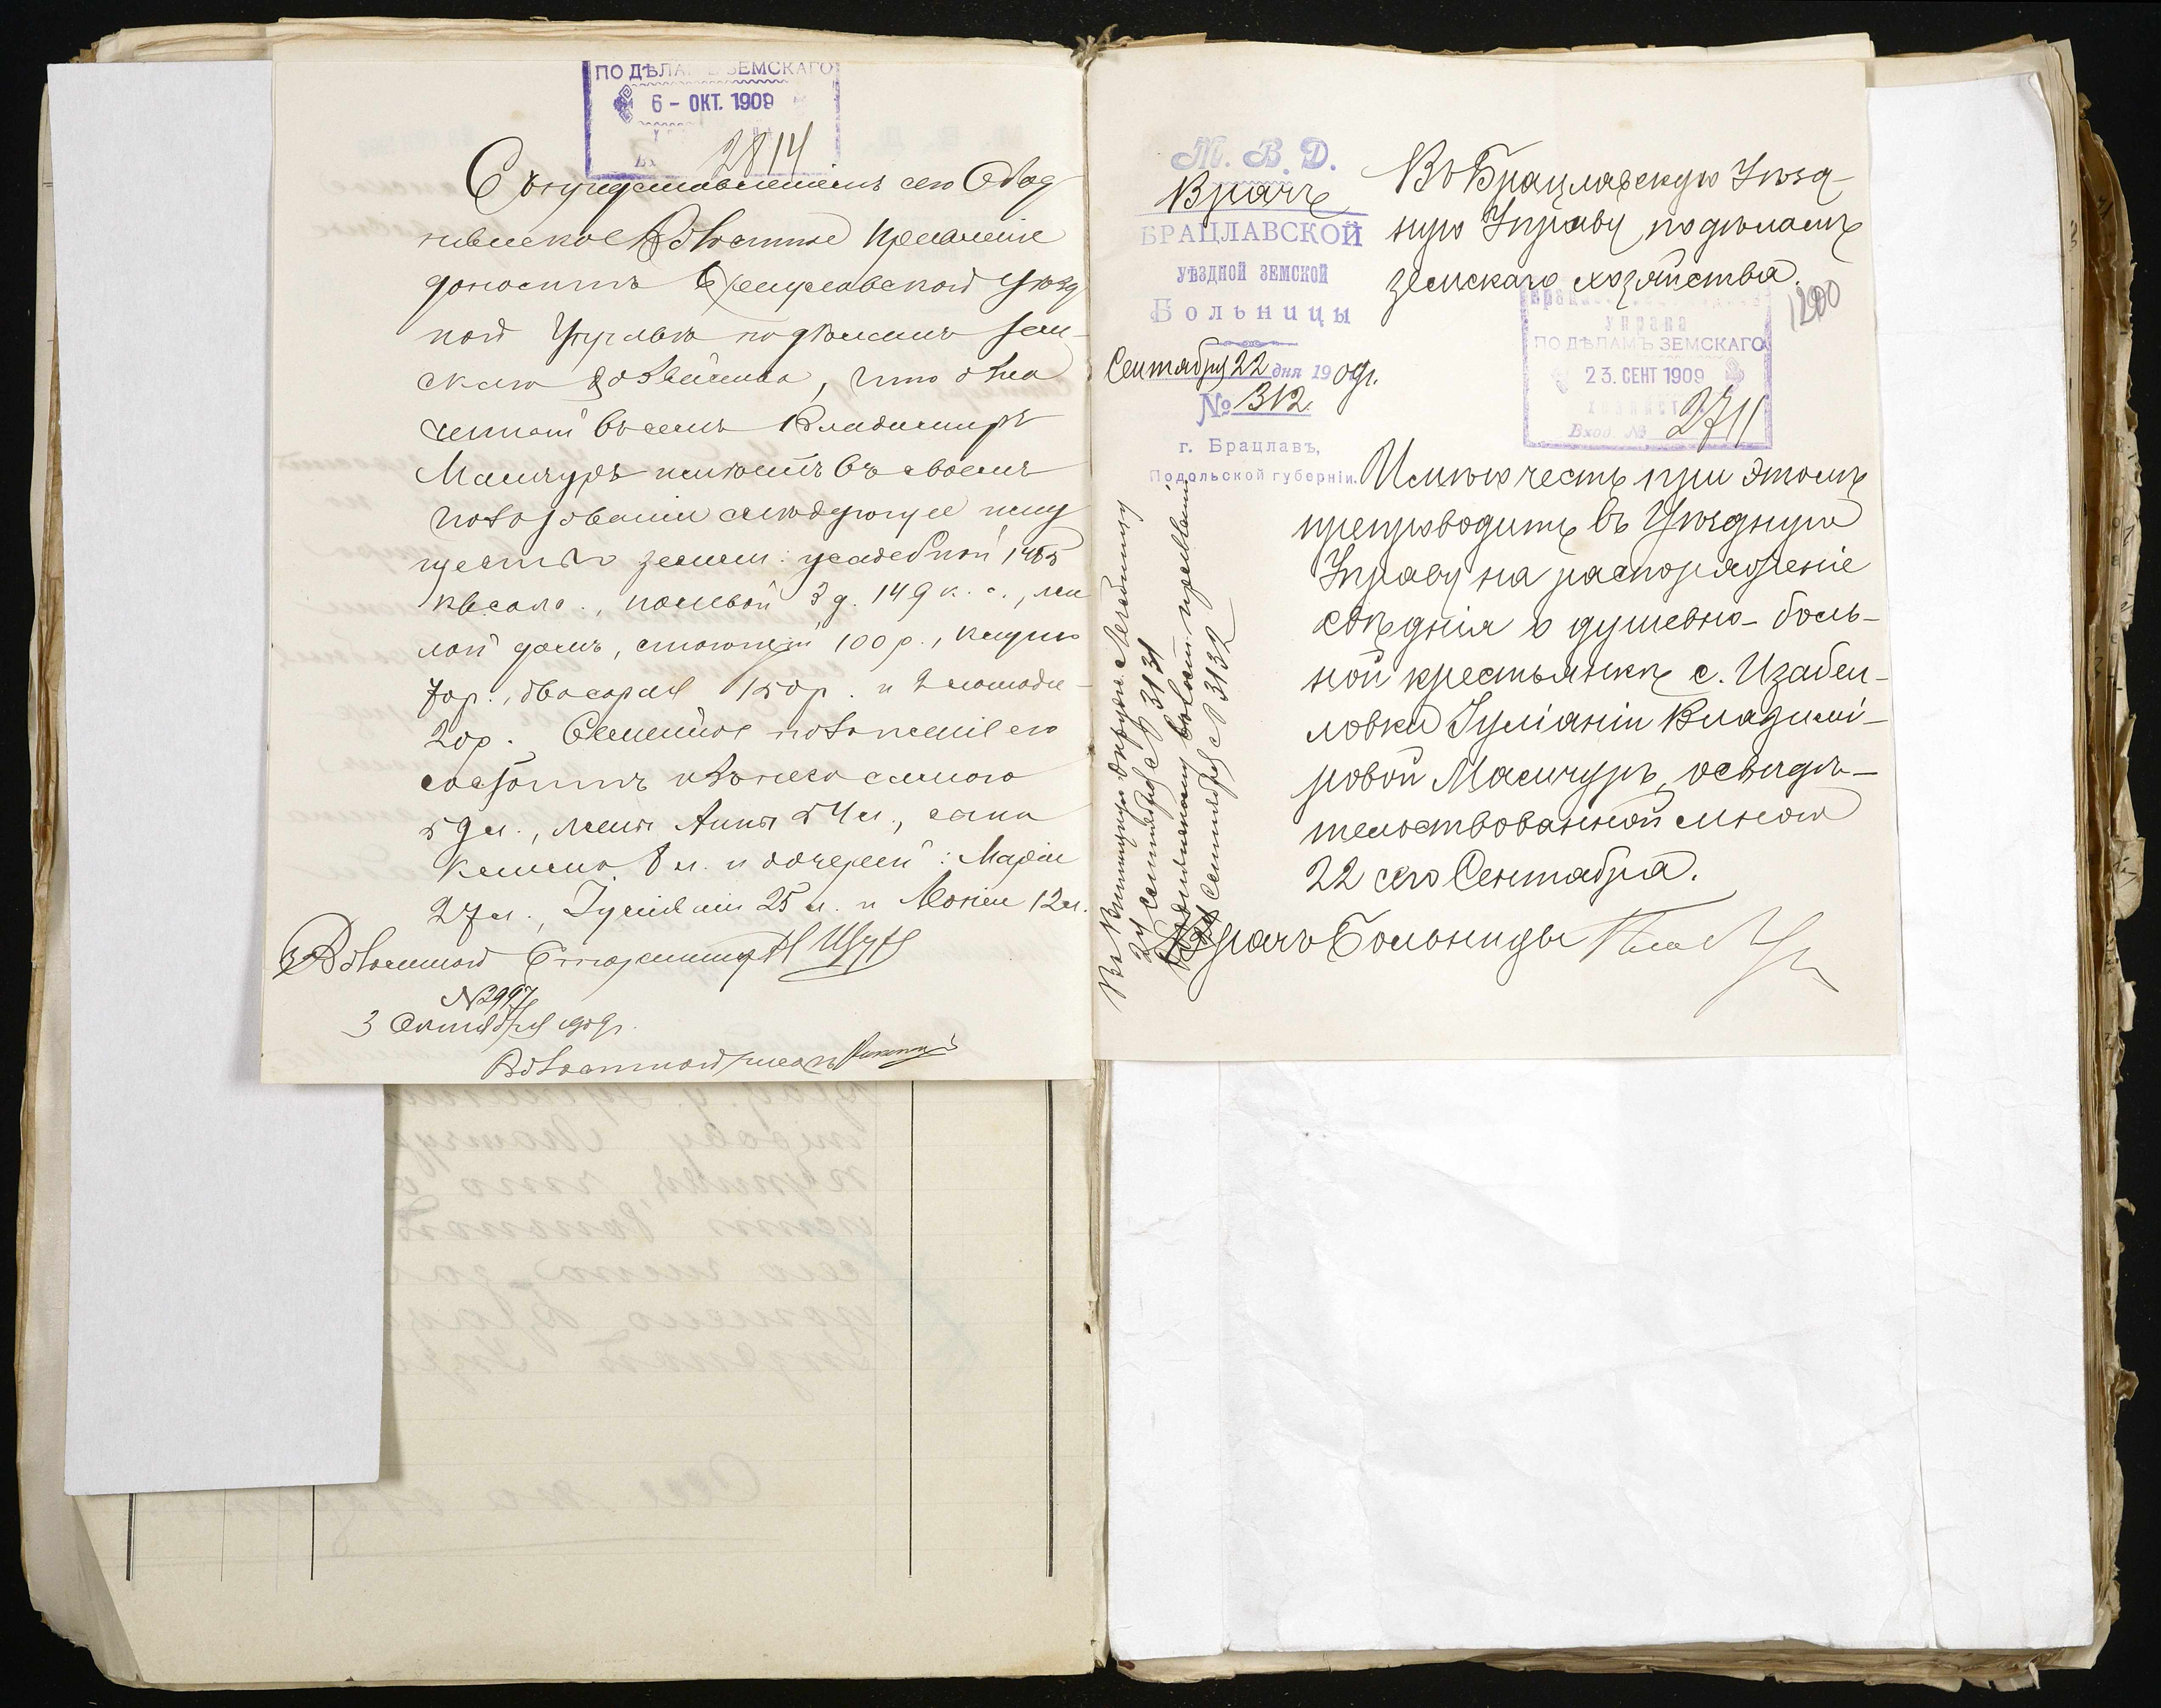 ПО ДѢЛА ЗЕМСКАГО
6 - ОКТ. 1909
2814
С представленіемъ сего Обод
нивское Волостное Правленіе
доноситъ Брацлавской Уѣзд
ной Управѣ по дѣламъ зем
скаго хозяйства, что озна
ченный въ семъ Владимиръ
Мамчуръ имѣетъ въ своемъ
пользованіи слѣдующее иму
щество земли: усадебной 1485
кв саж., полевой 3 д. 149 к. с., жи
лой домъ, стоющій 100 р., клуню
70 р., два сарая 150 р. и 2 лошади
20 р. Семейное положеніе его
состоитъ изъ него самого
59 л., жены Анны 54 л., сына
8 л. и дочерей: Маріи
27 л., Іуліаніи 25 л. и Ксеніи 12 л.
Волостной Старшина
№ 2997
3 Октября 1909 г.
Волостной писарь
М. В. Д.
Врачъ
БРАЦЛАВСКОЙ
УѢЗДНОЙ ЗЕМСКОЙ
Больницы
Сентября 22 дня 1909 г.
№ 312
г. Брацлавъ,
Подольской губерніи.
Въ Брацлавскую Уѣзд-
ную Управу по дѣламъ
земскаго хозяйства.
1200
Управа
ПО ДѢЛАМЪ ЗЕМСКАГО
23. СЕНТ 1909
Вход. № 2711
Имѣю честь при этомъ
препроводить въ Уѣздную
Управу на распоряженіе
свѣдѣнія о душевно-боль-
ной крестьянкѣ с. Изабел-
ловки Іуліаніи Владимі-
ровой Мамчуръ, освидѣ-
тельствованной мною
22 сего Сентября.
Врачъ Больницы
Въ Винницкую Окружн. Лечебницу
24 сентября № 3131
волост. правленію
24 Сентября № 3132